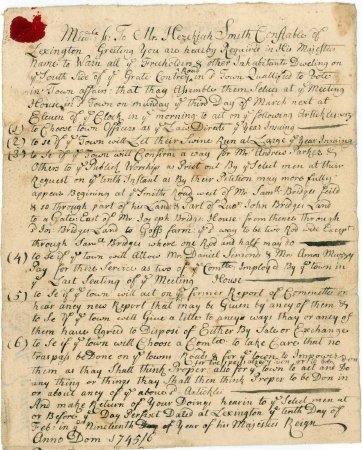 Midd. ss. To Mr. Hezekiah Smith Constable of
Lexington Greeting You are hearby Required in His Majesties
Name to Warn all ye Freeholders & other Inhabitants Dweling on
ye South Side of ye Grate Contrey Road in sd Town Quallified to Vote
in Town affairs that thay Assemble them Selves at ye Meeting
House in sd Town on munday ye Third Day of March next at
Eleven of ye Clock in ye morning to act on ye following Articles viz
(1) to Choose town Officers as ye Law Dirrects ye Year Insuing
(2) to Se if ye Town will Let their Swine Run at Large ye Year Insuing
(3) to Se if ye Town will Confirm a way for Mr. Andrew Parker &
Others to ye Publick Worship as Prict out By ye Select men at their
Request on ye South Side as By their Petition may more fully
Appear Begining at ye Smiths Road west of Mr. Samll Bridges Feild
& so through part of his Land & Part of Quo John Bridges Land
to a Gate East of Mr. Joseph Bridge House from thence through
sd Jos Bridges Land to Goffs farm ye sd way to be two Rod wide Except
through Samll Bridges where one Rod and half may Do
(4) to Se if ye town will Allow Mr. Daniel Simonds & Mr. Amos Muzzy
Pay for their Service as two of ye Comtte Imployed By ye town in
ye Last Seating of ye Meeting House
(5) to Se if ye town will act on ye former Report of Committe or
hear any new Report that may be Given by any of them &
to Se if ye town will Give a title to any ways thay or any of
them have Agreed to Dispose of Either By Sale or Exchange
(6) to Se if ye town will Choose a Comtte to take Care that no
Traspass be Done on ye town Road & for ye town to Impower
them as thay Shall think Proper also for ye town to act and Do
any thing or things thay Shall then think Proper to be Don in
or about any of ye above sd Articles
And make Return of Your Doings hearin to ye Select men at
or Before ye Day Perfixt Dated at Lexington ye tenth Day of
Feb: in ye Nineteenth Year of his Majesties Reign
Anno Dom 1745/6